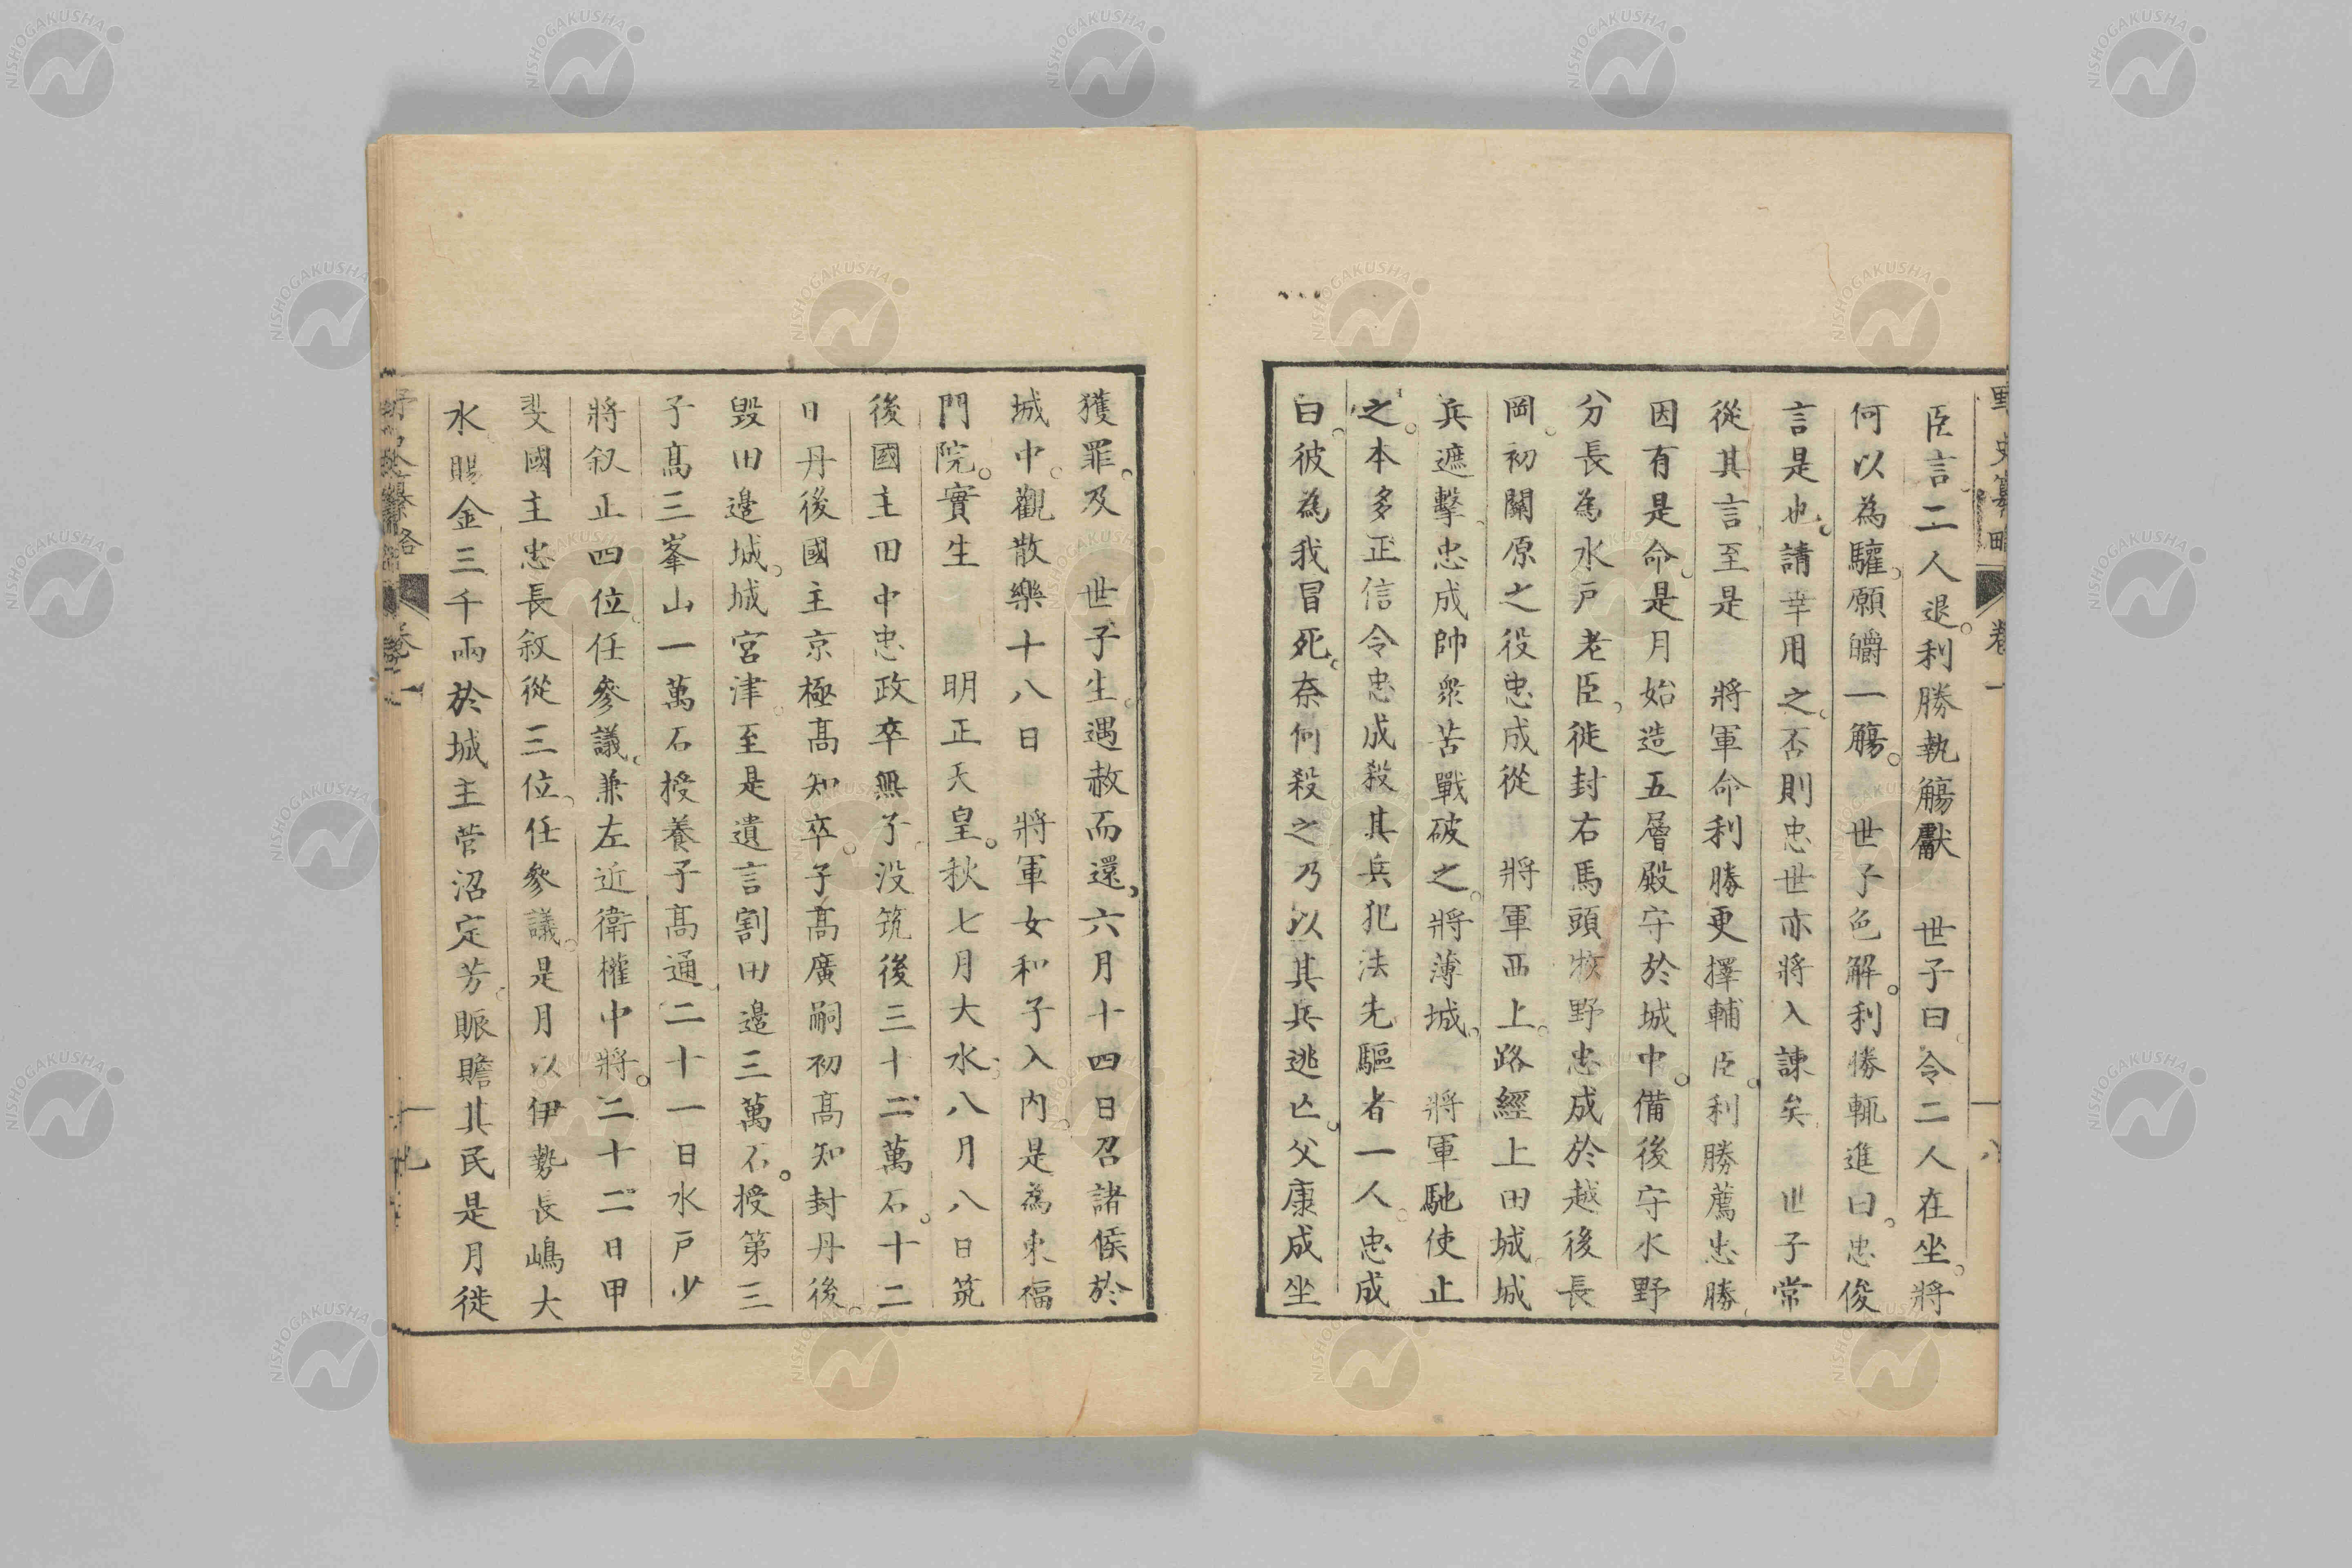 野史纂略 卷一 十八
臣言二人退。利勝執觴獻 世子曰、令二人在坐。將
何以為驩、願皭一觴。 世子色解。利勝輒進曰、忠俊
言是也、請幸用之、否則忠世亦將入諫矣、 世子常
從其言、至是 將軍命利勝更擇輔臣。利勝薦忠勝、
因有是命、是月始造五層殿守於城中。備後守水野
分長為水戶老臣、徙封右馬頭牧野忠成於越後長
岡。初關原之役忠成從 將軍西上。路經上田城、城
兵遮擊、忠成帥衆苦戰破之。將薄城、 將軍馳使止
之。本多正信令忠成殺其兵犯法先驅者一人。忠成
曰、彼為我冒死、奈何殺之乃以其兵逃亡、父康成坐
獲罪、及 世子生、遇赦而還、六月十四日召諸侯於
城中、觀散樂十八日 將軍女和子入內、是為東福
門院。實生 明正天皇。秋七月大水、八月八日筑
後國主田中忠政卒無子、没筑後三十二萬石。十二
日丹後國主京極高知卒。子高廣嗣初高知封丹後、
毀田邊城、城宮津、至是遺言割田邊三萬石。授第三
子高三峯山一萬石授養子高通、二十一日水戶少
將叙正四位、任參議、兼左近衛權中將。二十二日甲
斐國主忠長叙從三位、任參議。是月以伊勢長嶋大
水、賜金三千兩於城主菅沼定芳、賑贍其民是月徙
野史纂略 卷一 十九